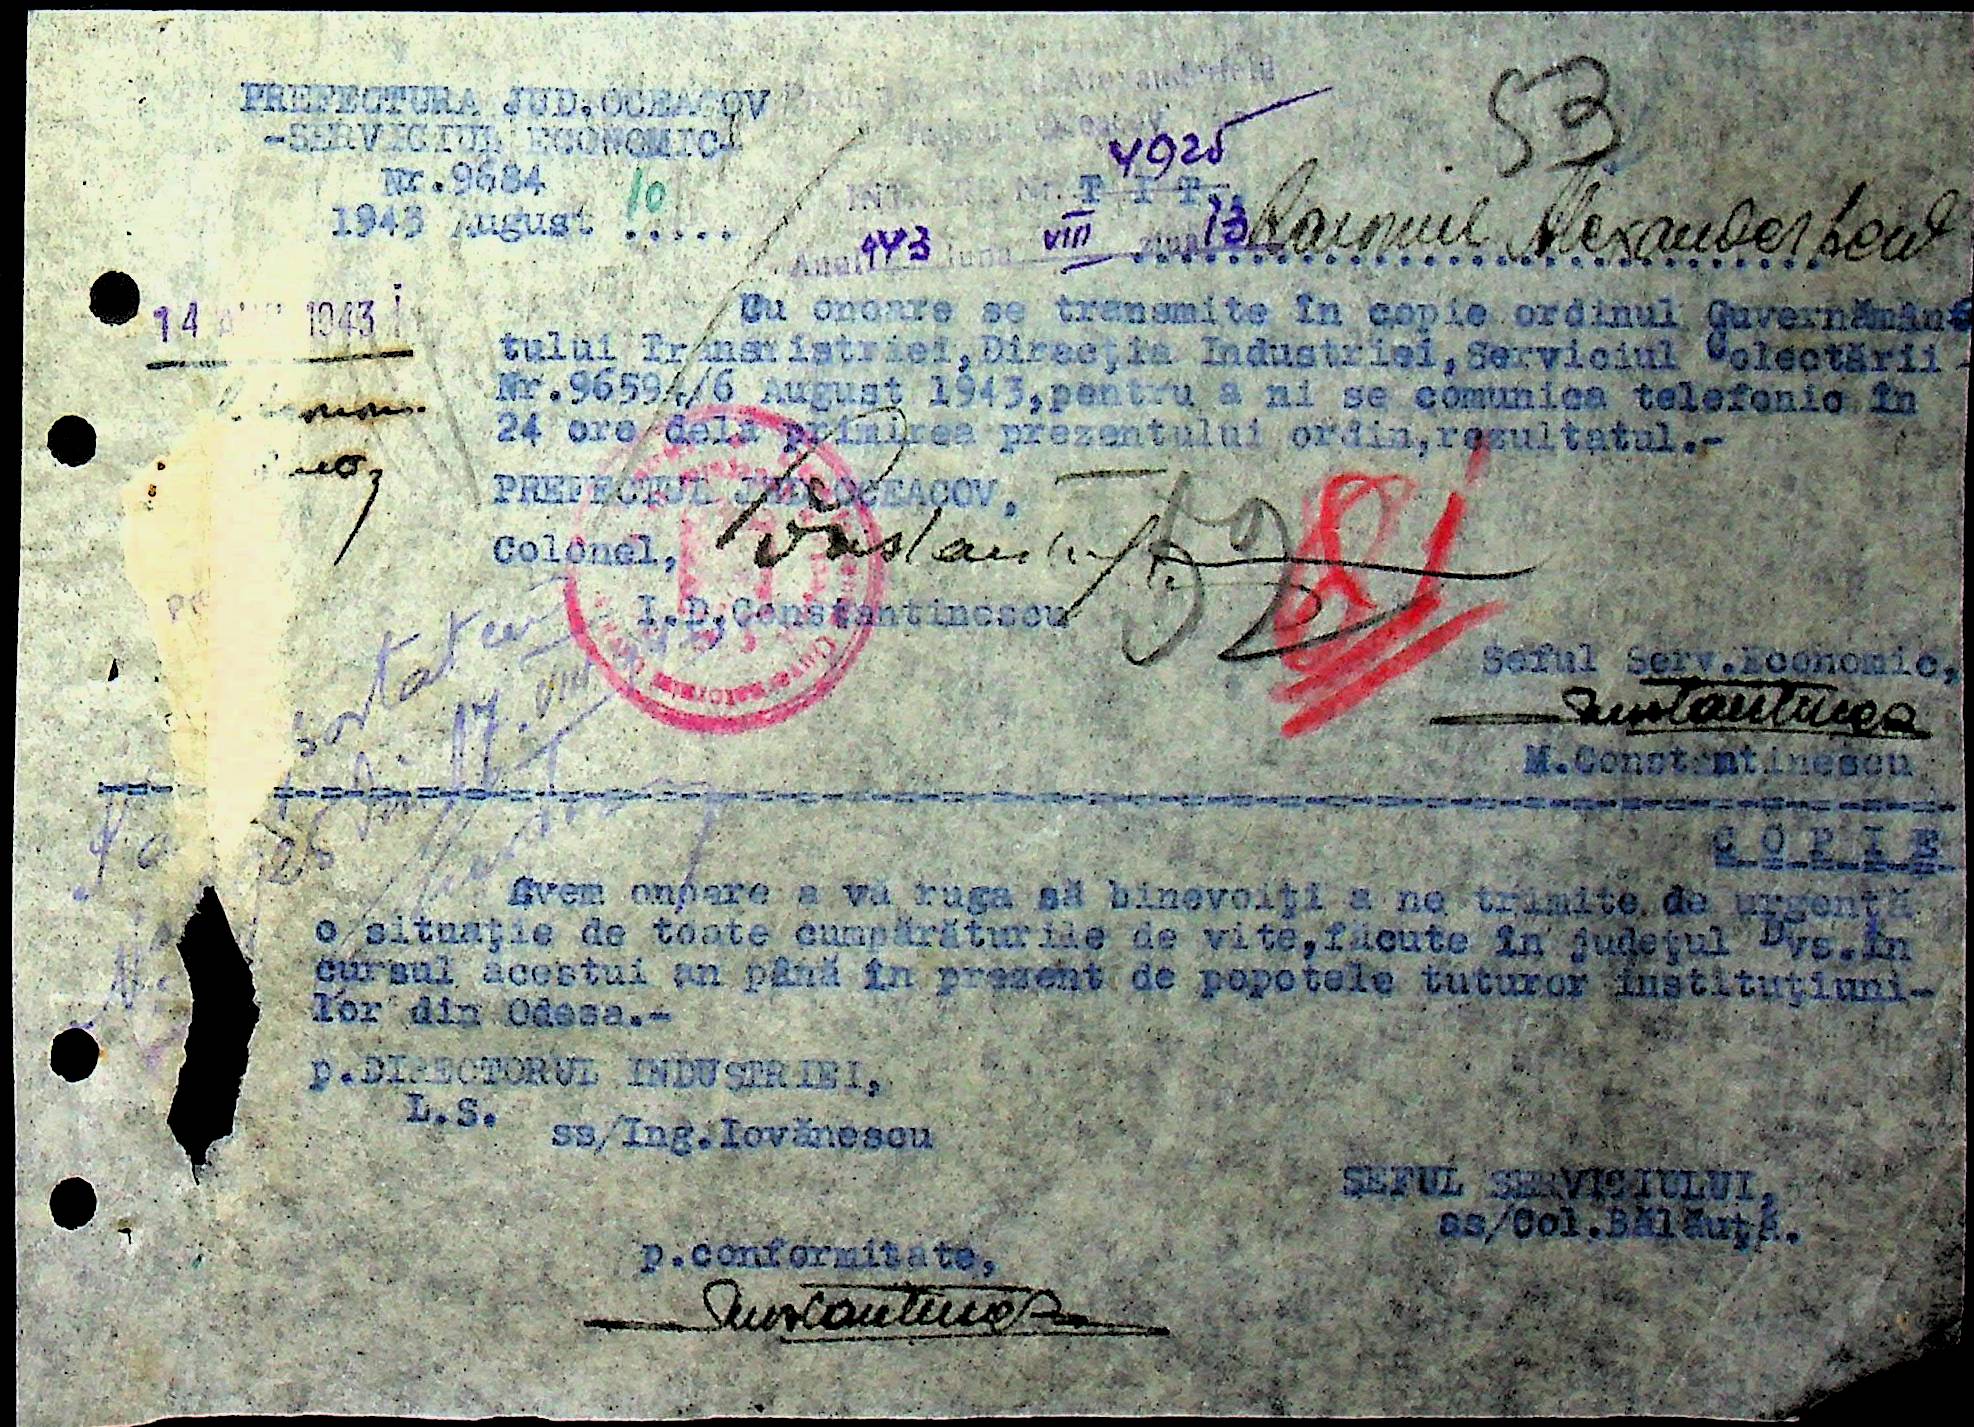 PREFECTURA JUD.OCEACOV
-SERVICIUL ECONOMIC-
Nr.9684
1943 August 10.....
Alexanderfeld
4925
INTRARE Nr.
T I T.,
Anul 943 luna VIII ziua 13
53
Raionul Alexanderfeld
14 AUG 1943
Cu onoare se transmite în copie ordinul Guvernămân-
tului Transnistriei,Direcţia Industriei,Serviciul Colectării
Nr.96594/6 August 1943,pentru a ni se comunica telefonic în
24 ore dela primirea prezentului ordin,rezultatul.-
PREFECTUL JUD.OCEACOV,
Colonel,
I.D.Constantinescu
52
81
17.VIII
Seful Serv.Economic,
M.Constantinescu
26
C O P I E
Avem onoare a vă ruga să binevoiţi a ne trimite de urgenţă
o situaţie de toate cumpărăturile de vite,făcute în judeţul Dvs.în
cursul acestui an până în prezent de popotele tuturor instituţiuni-
lor din Odesa.-
p.DIRECTORUL INDUSTRIEI,
L.S.
ss/Ing.Iovănescu
SEFUL SERVICIULUI,
ss/Col.Bălăuţă.
p.conformitate,